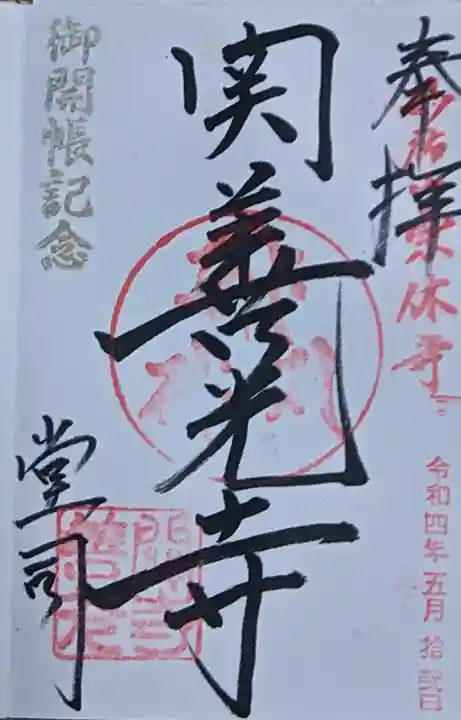 奉拝
令和四年五月拾弐日
関善光寺
御開帳記念
堂司